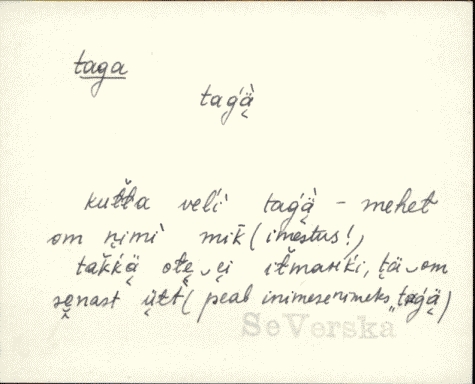 taga
taǵä̀
kut̆t̆a veĺì taǵä̀ – mehet
om nimì mik̄ (imestus!)
tak̆k̆ä ote‿ei it̆maŕiḱi, tä‿om
senast üt̆t (peab inimesenimeks „taǵä)
SeVerska